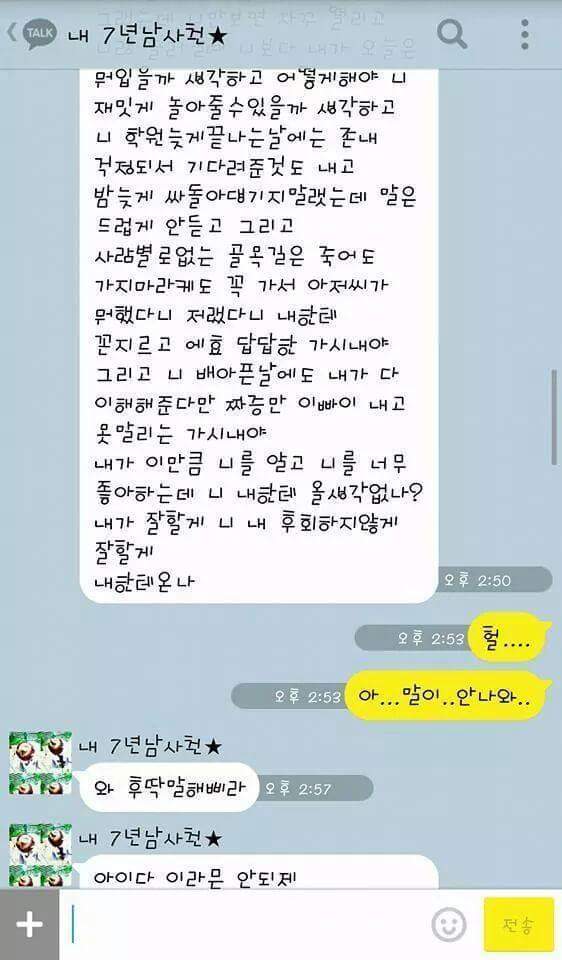 TALK 내 7년남사친★
뭐입을까 생각하고 어떻게해야 니
재밋게 놀아줄수있을까 생각하고
니 학원늦게끝나는날에는 존내
걱정되서 기다려준것도 내고
밤늦게 싸돌아댜기지말랬는데 말은
드럽게 안듣고 그리고
사람별로없는 골목길은 죽어도
가지마라케도 꼭 가서 아저씨가
뭐했다니 저랬다니 내한테
꼰지르고 에효 답답한 가시내야
그리고 니 배아픈날에도 내가 다
이해해준다만 짜증만 이빠이 내고
못말리는 가시내야
내가 이만큼 니를 알고 니를 너무
좋아하는데 니 내한테 올생각없나?
내가 잘할게 니 내 후회하지않게
잘할게
내한테온나
오후 2:50
오후 2:53 헐....
오후 2:53 아...말이..안나와..
내 7년남사친★
와 후딱말해삐라 오후 2:57
내 7년남사친★
아이다 이라믄 안되제
전송